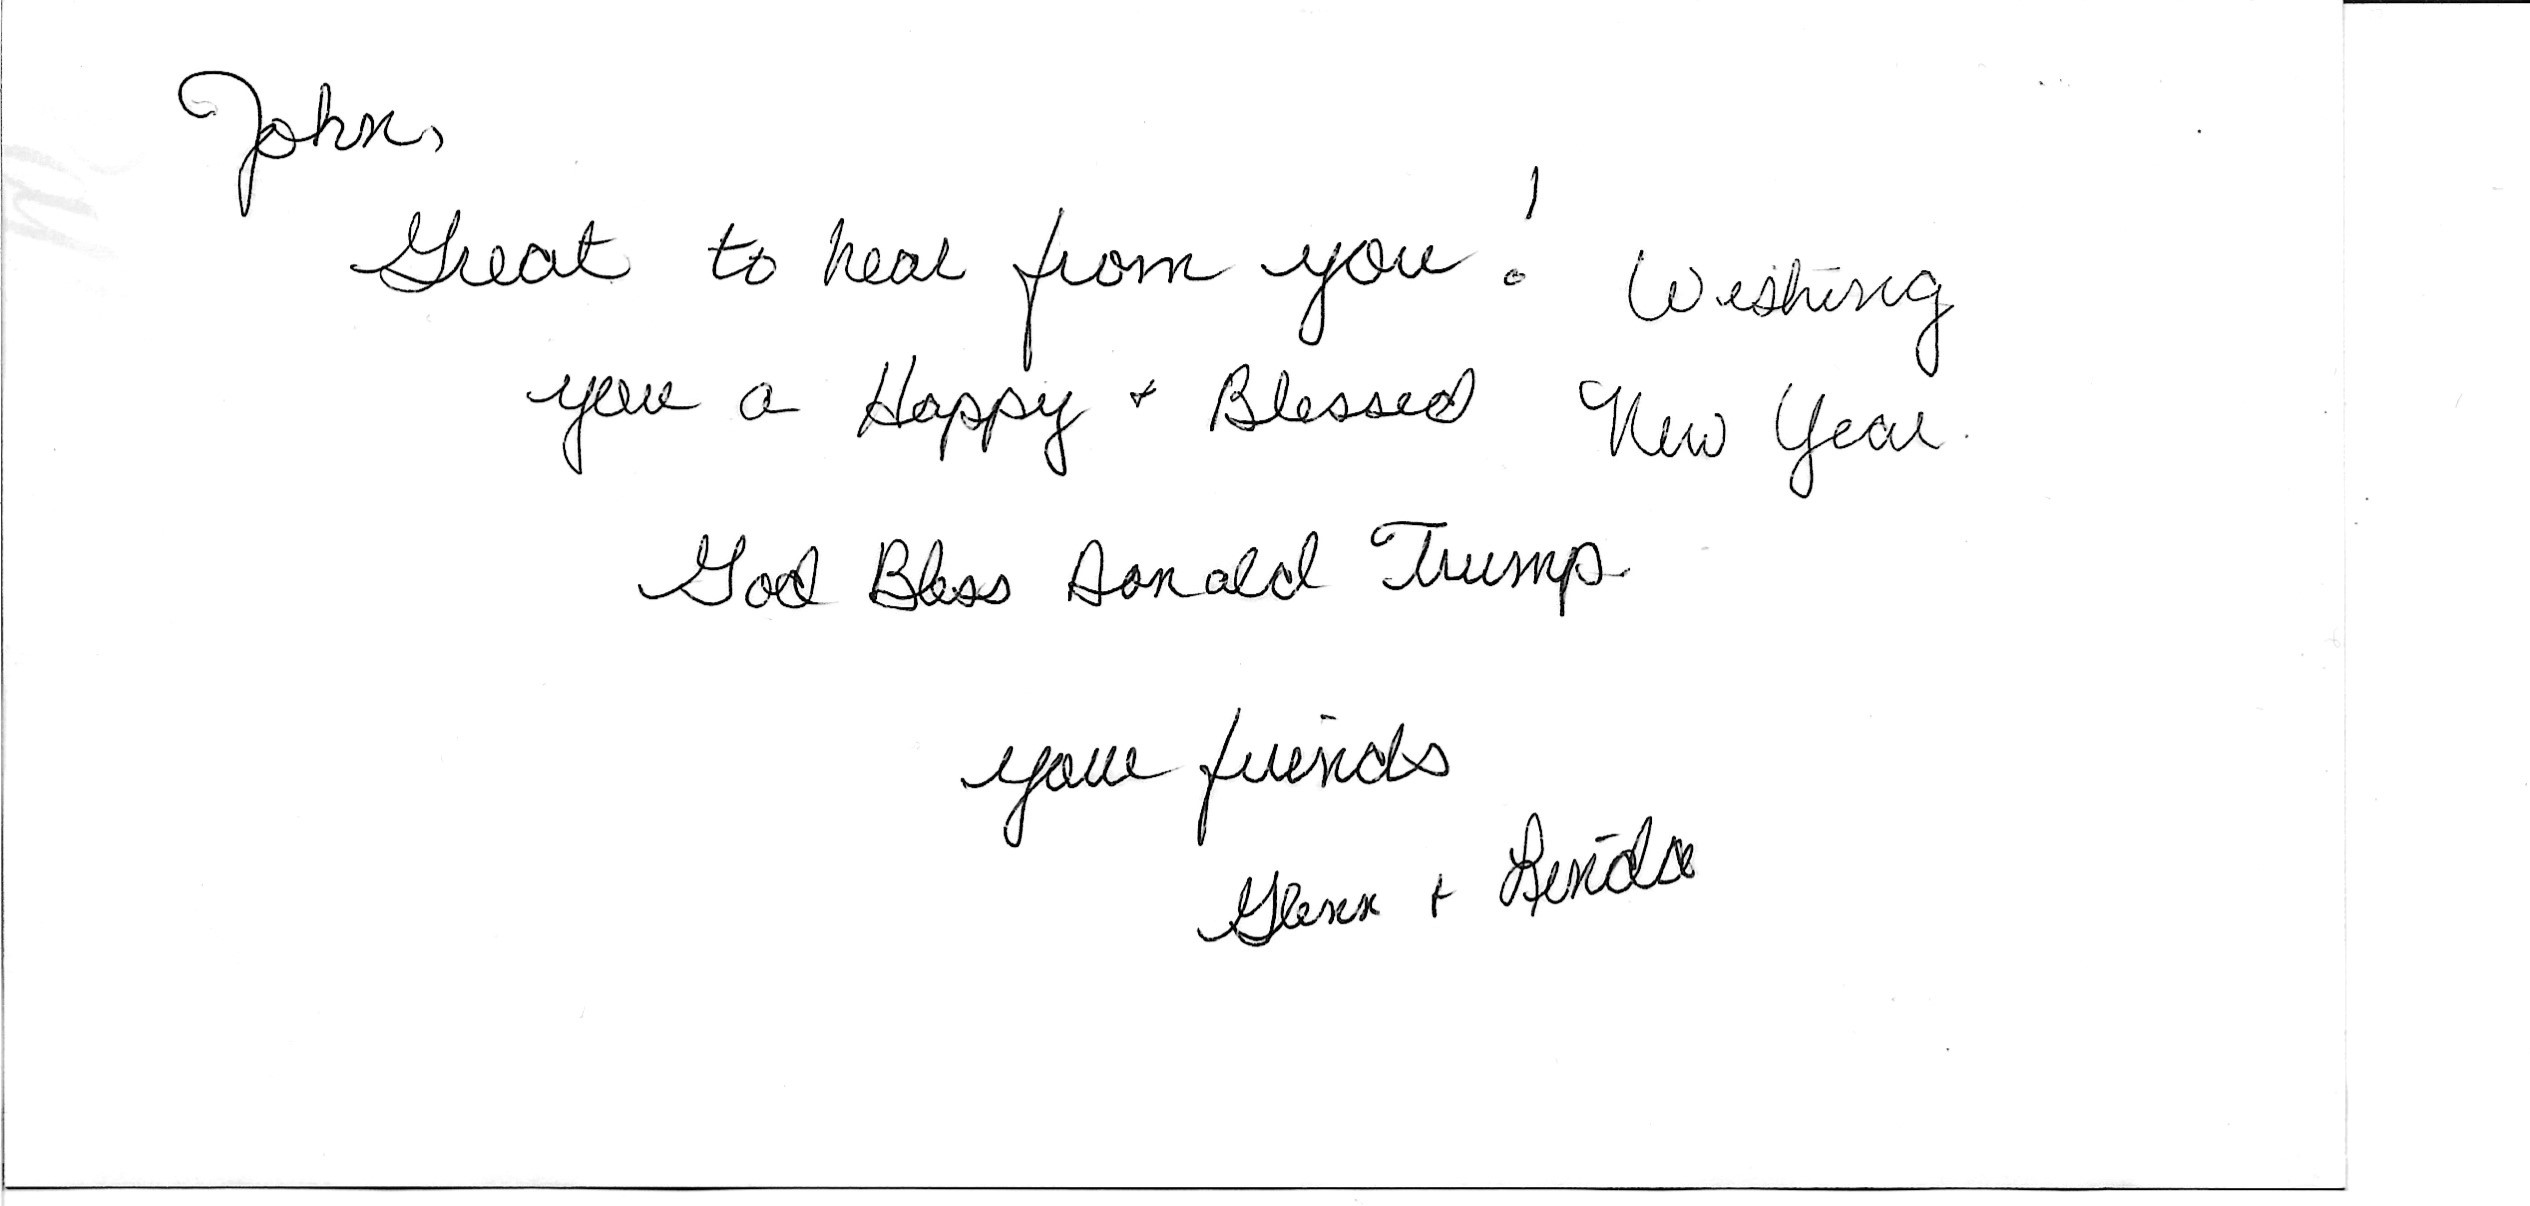 John,
Great to hear from you! Wishing
you a Happy + Blessed New Year.
God Bless Donald Trump
your friends
Glenn + Linda